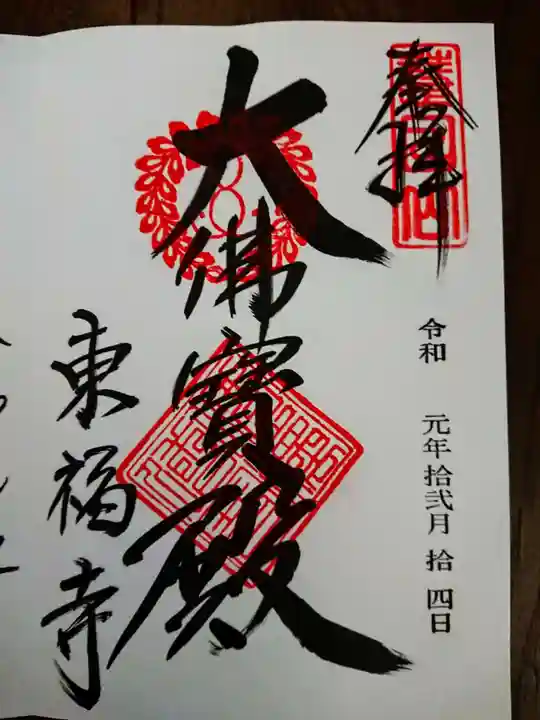 奉拝
令和 元年拾弐月 拾四日
大佛寶殿
東福寺